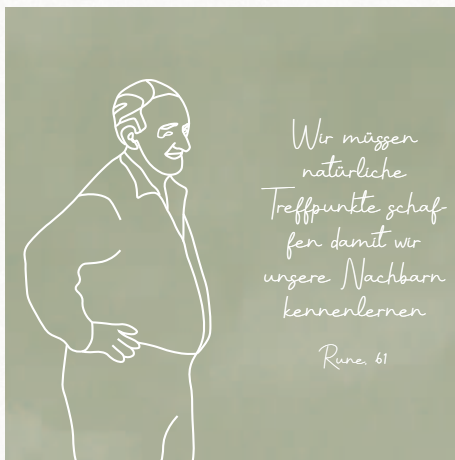 Wir müssen
natürliche
Treffpunkte schaf-
fen damit wir
unsere Nachbarn
kennenlernen
Rune. 61